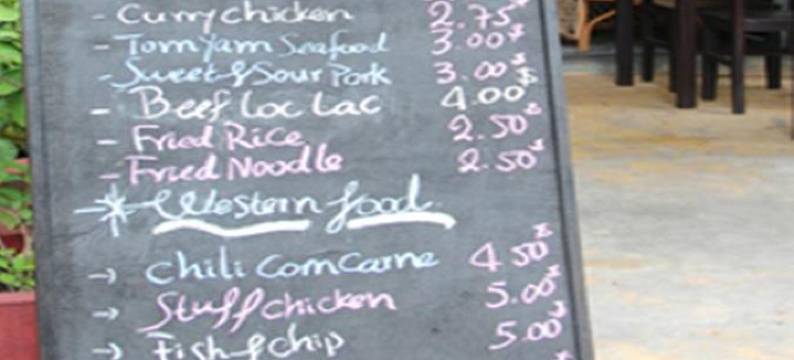 - Curry chicken 2.75$
- Tom yam Seafood 3.00$
- Sweet & Sour Pork 3.00$
- Beef Loc Lac 4.00$
- Fried Rice 2.50$
- Fried Noodle 2.50$
* Western food
→ Chili Com Carne 4.50$
→ Stuff chicken 5.00$
→ Fish & chip 5.00$